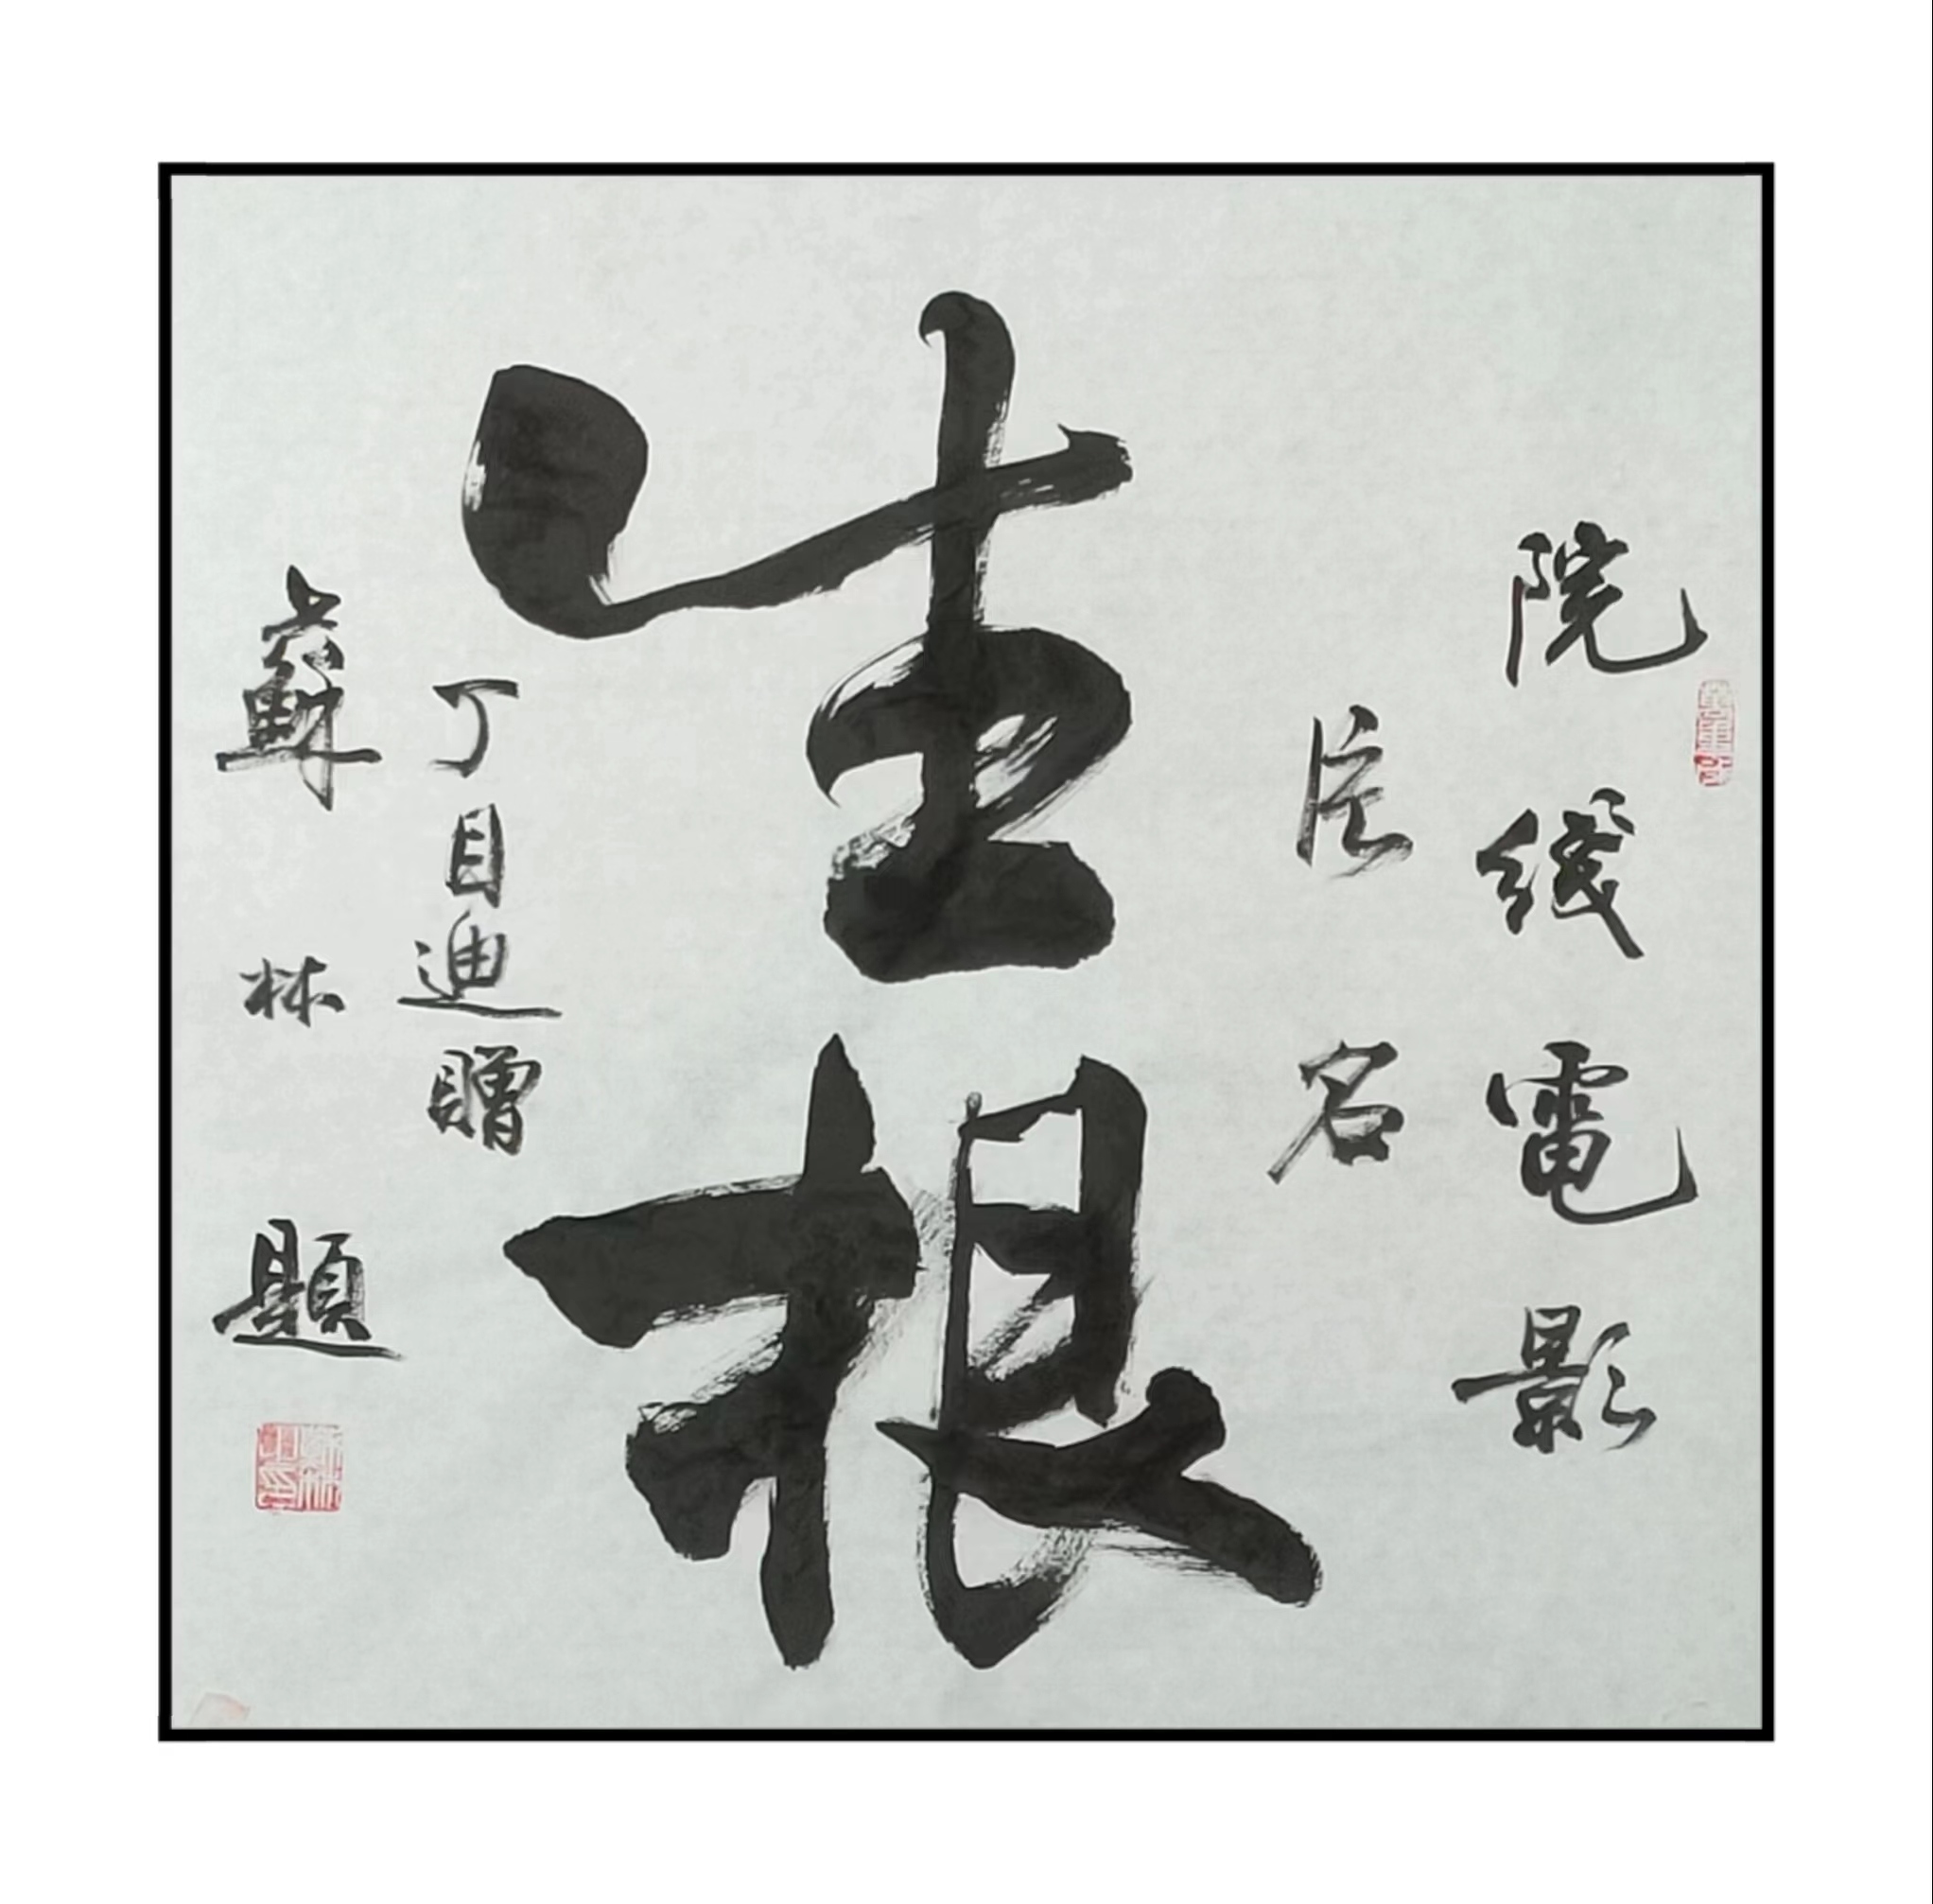 院綫電影
片名
生根
丁目迪贈
林題